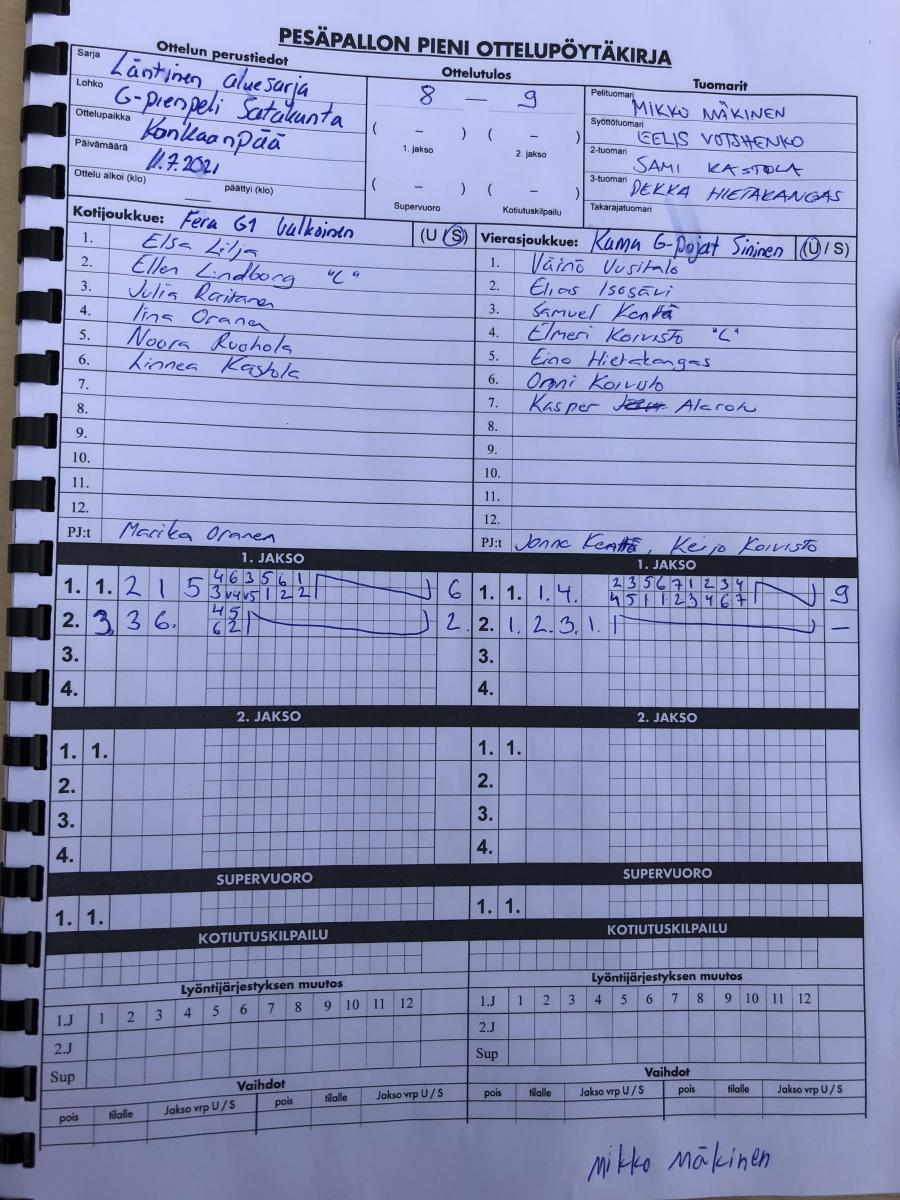 PESÄPALLON PIENI OTTELUPÖYTÄKIRJA
Ottelun perustiedot
Sarja Läntinen aluesarja
Lohko G-pienpeli Satakunta
Ottelupaikka Kankaanpää
Päivämäärä 11.7.2021
Ottelu alkoi (klo) päättyi (klo)
Ottelutulos
8 — 9
( – ) ( – )
1. jakso 2. jakso
( – ) ( – )
Supervuoro Kotiutuskilpailu
Tuomarit
Pelituomari MIKKO MÄKINEN
Syöttötuomari EELIS VOTSHENKO
2-tuomari SAMI KASTOLA
3-tuomari PEKKA HIETAKANGAS
Takarajatuomari
Kotijoukkue: Fera G1 Valkoinen (U / S)
1. Elsa Lilja
2. Ellen Lindborg "C"
3. Julia Raitanen
4. Iina Oranen
5. Noora Ruohola
6. Linnea Kastola
7.
8.
9.
10.
11.
12.
PJ:t Marika Oranen
Vierasjoukkue: Kama G-Pojat Sininen (U / S)
1. Väinö Uusitalo
2. Elias Isosävi
3. Samuel Kenttä
4. Elmeri Koivisto "C"
5. Eino Hietakangas
6. Onni Koivisto
7. Kasper
8.
9.
10.
11.
12.
PJ:t Janne Kenttä, Keijo Koivisto
1. JAKSO
1. 1. 2 1 5 4 6 3 5 6 1 6
3 v4 v5 1 2 2
2. 3. 3 6. 4 5 2
6 2
3.
4.
1. JAKSO
1. 1. 1. 4. 2 3 5 6 7 1 2 3 4 9
4 5 1 1 2 3 4 6 7
2. 1. 2. 3. 1. –
3.
4.
2. JAKSO
1. 1.
2.
3.
4.
2. JAKSO
1. 1.
2.
3.
4.
SUPERVUORO
1. 1.
SUPERVUORO
1. 1.
KOTIUTUSKILPAILU
KOTIUTUSKILPAILU
Lyöntijärjestyksen muutos
1.J 1 2 3 4 5 6 7 8 9 10 11 12
2.J
Sup
Lyöntijärjestyksen muutos
1.J 1 2 3 4 5 6 7 8 9 10 11 12
2.J
Sup
Vaihdot
pois tilalle Jakso vrp U / S pois tilalle Jakso vrp U / S
Vaihdot
pois tilalle Jakso vrp U / S pois tilalle Jakso vrp U / S
Mikko Mäkinen